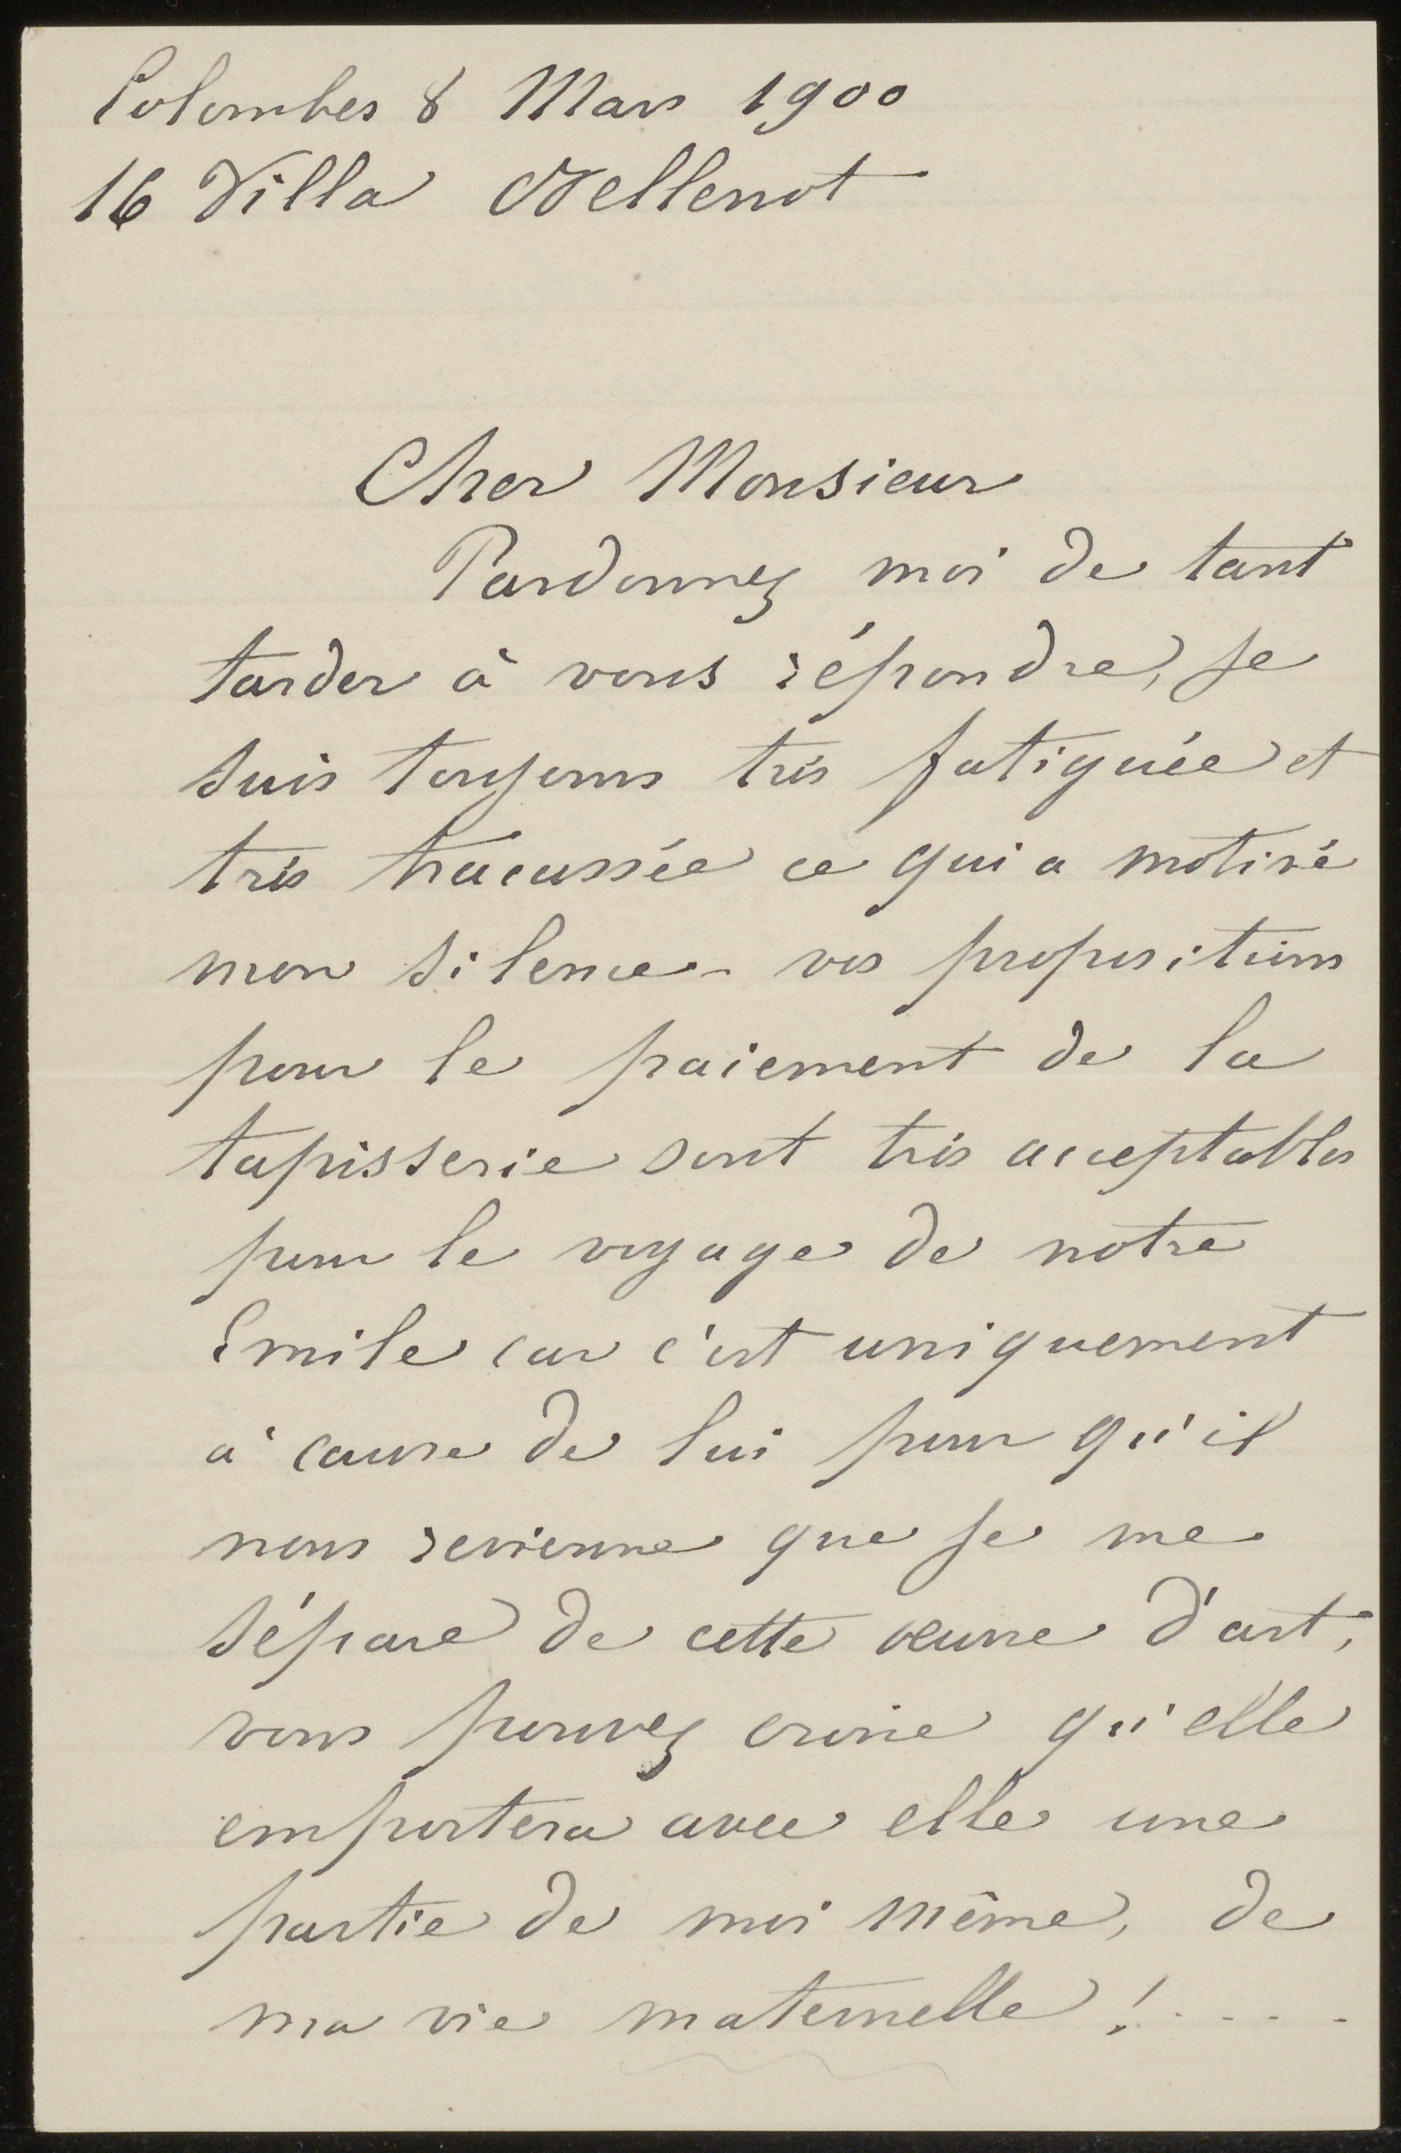 Colombes 8 Mars 1900
16 Villa Mellenot
Cher Monsieur
Pardonnez moi de tant
tarder à vous répondre, je
suis toujours très fatiguée et
très tracassée ce qui a motivé
mon silence - vos propositions
pour le paiement de la
tapisserie sont très acceptables
pour le voyage de notre
Emile car c'est uniquement
à cause de lui pour qu'il
nous revienne que je me
sépare de cette œuvre d'art,
vous pouvez croire qu'elle
emportera avec elle une
partie de moi même, de
ma vie maternelle ! . . . .